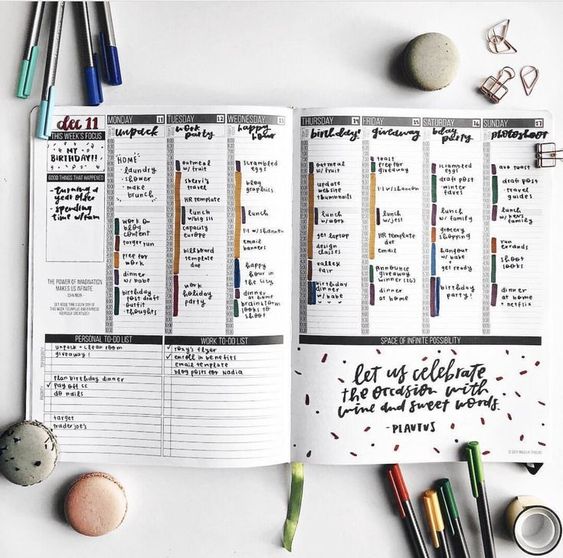 dec 11
THIS WEEK'S FOCUS
MY
BIRTHDAY!!
GOOD THINGS THAT HAPPENED
- turning a
year older
- spending
time w/fam
THE POWER OF IMAGINATION
MAKES US INFINITE.
MONDAY 11
unpack
HOME:
laundry
shower
make
brunch
work on
blog
content
target run
dinner
w/babe
birthday
post draft
outfit
thoughts
TUESDAY 12
work
party
oatmeal
w/fruit
travel
HR template
lunch
w/big sis
capacity
europe
billboard
template
work
holiday
party
WEDNESDAY 13
happy
hour
scrambled
eggs
blog
graphics
lunch
email
banners
happy
hour in
the city
dinner
at home
brainstorm
looks to
shoot
THURSDAY 14
birthday!
oatmeal
w/fruit
update
website
thumbnails
lunch
w/work
get laptop
design
classes
birthday
dinner
w/babe
FRIDAY 15
giveaway
toast
prep for
giveaway
lunch
w/jess
HR template
email
announce
giveaway
winner (IG)
dinner
at home
SATURDAY 16
bday
party
scrambled
eggs
draft post
winter
faves
lunch
w/family
grocery
shopping
hangout
w/babe
get ready
birthday
party!
SUNDAY 17
photoshoot
avo toast
draft post
travel
guides
lunch
w/fam
family
run
errands
shoot
looks
dinner
at home
netflix
PERSONAL TO-DO LIST
unpack + clean room
giveaway!
plan birthday dinner
✓ pay off cc
do nails
target
trader joe's
WORK TO-DO LIST
✓ tony's flyer
✓ enroll in benefits
email template
blog posts for nadia
SPACE OF INFINITE POSSIBILITY
let us celebrate
the occasion with
wine and sweet words.
- PLAUTUS